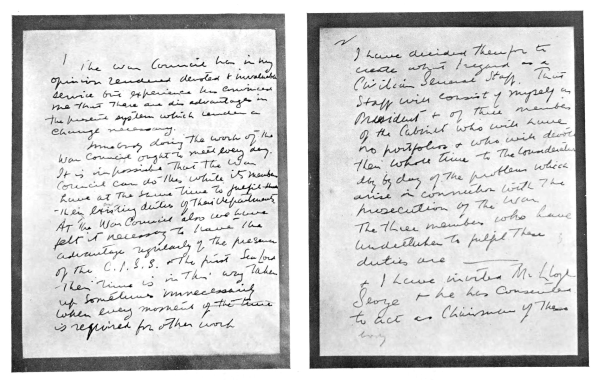 1 The War Council has in my
opinion rendered devoted & invaluable
service but experience has convinced
me that there are disadvantages in
the present system which render a
change necessary.
Somebody doing the work of the
War Council ought to meet every day.
It is impossible that the War
Council can do this while its members
have at the same time to fulfil
their existing duties of their Departments
At the War Council also we have
felt it necessary to have the
advantage regularly of the presence
of the C.I.G.S. & the First Sea Lord
Their time is in this way taken
up sometimes unnecessarily
when every moment of the time
is required for other work
2
I have decided therefore to
create what I regard as a
Civilian General Staff. That
Staff will consist of myself as
President & of three members
of the Cabinet who will have
no portfolios & who will devote
their whole time to the consideration
day by day of the problems which
arise in connection with the
prosecution of the War.
The three members who have
undertaken to fulfil these
duties are
& I have invited Mr Lloyd
George & he has consented
to act as Chairman of these